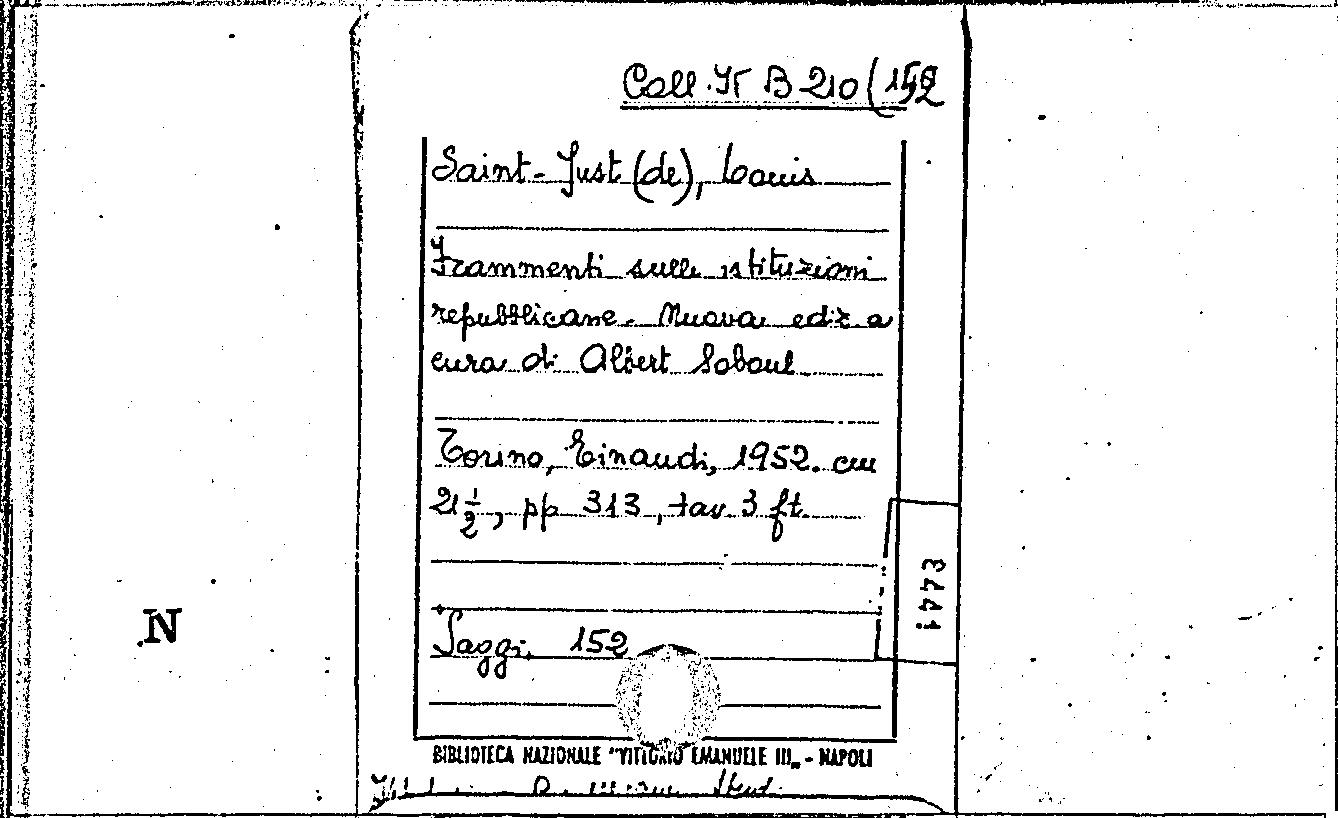 Coll. It B 210 (152
Saint-Just (de), Louis
Frammenti sulle istituzioni
repubblicane. Nuova ediz a
cura di Albert Soboul
Torino, Einaudi, 1952. cm
21 1/2, pp 313, tav 3 ft.
Saggi. 152
BIBLIOTECA NAZIONALE "VITTORIO EMANUELE III„ - NAPOLI
N